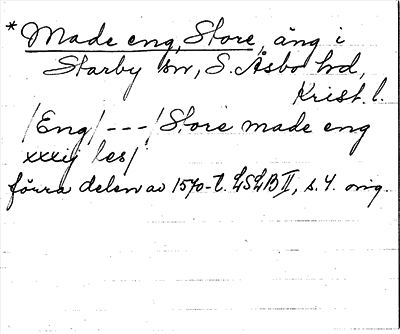 * Made eng, Store, äng i
Starby sn, S. Åsbo hd,
Krist. l.
/Eng/ --- /Store made eng
xxxij les/
förra delen av 1570-t. LSLB II, s. 4. orig.